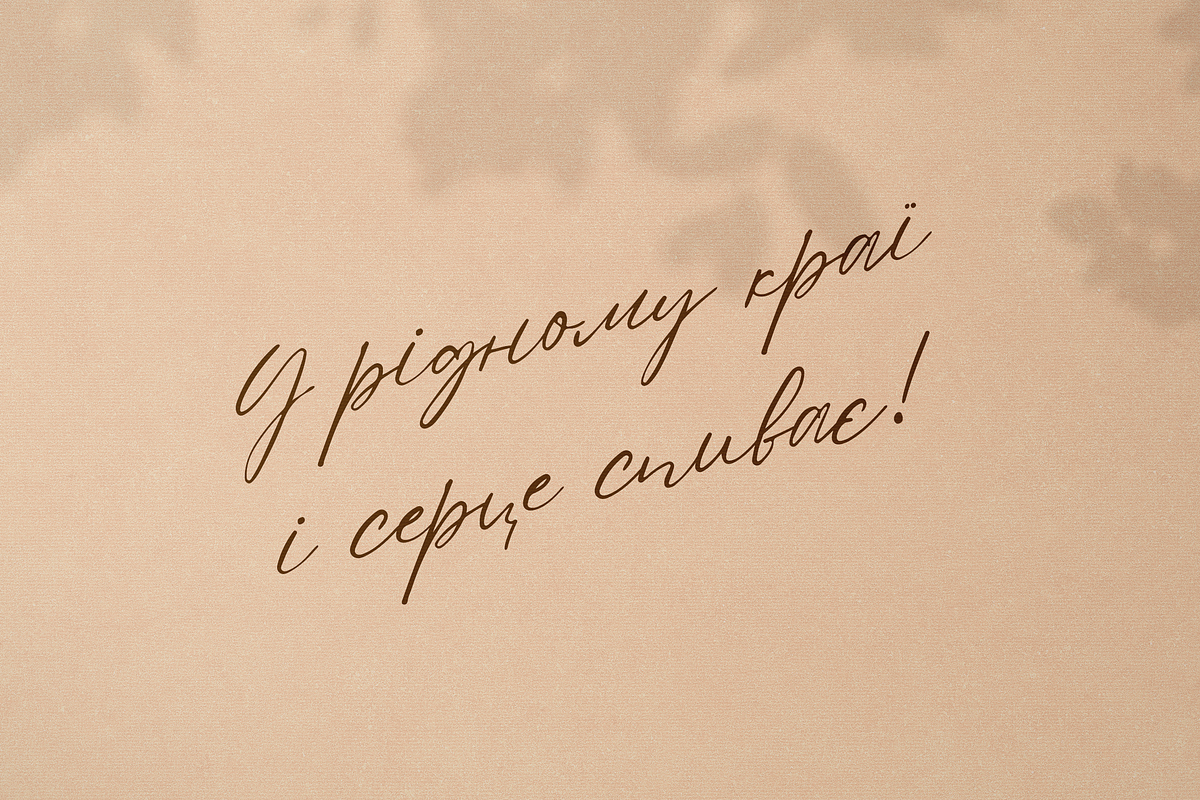 У рідному краї
і серце спиває!